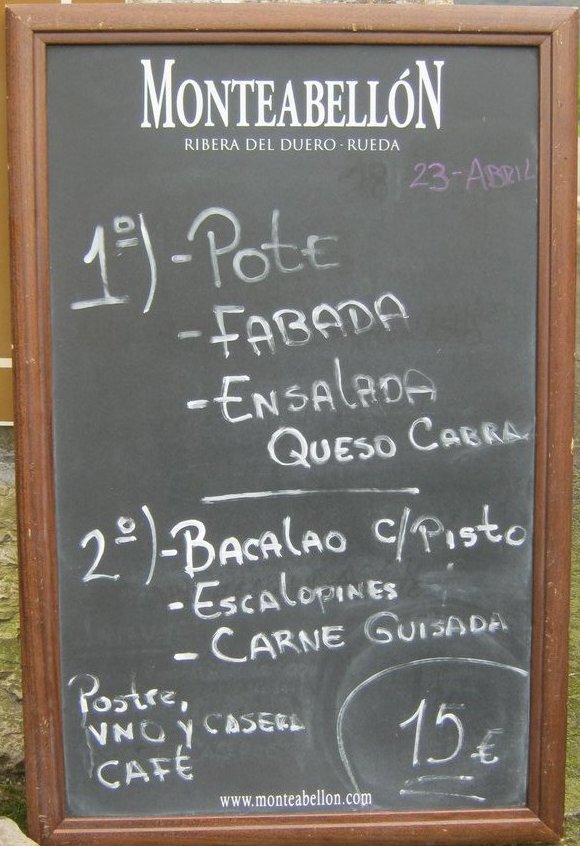 MONTEABELLÓN
RIBERA DEL DUERO · RUEDA
23-ABRIL
1º)-POTE
-FABADA
-ENSALADA
QUESO CABRA
2º)-BACALAO C/PISTO
-ESCALOPINES
- CARNE GUISADA
Postre,
VNO Y CASERA
CAFÉ
15€
www.monteabellon.com